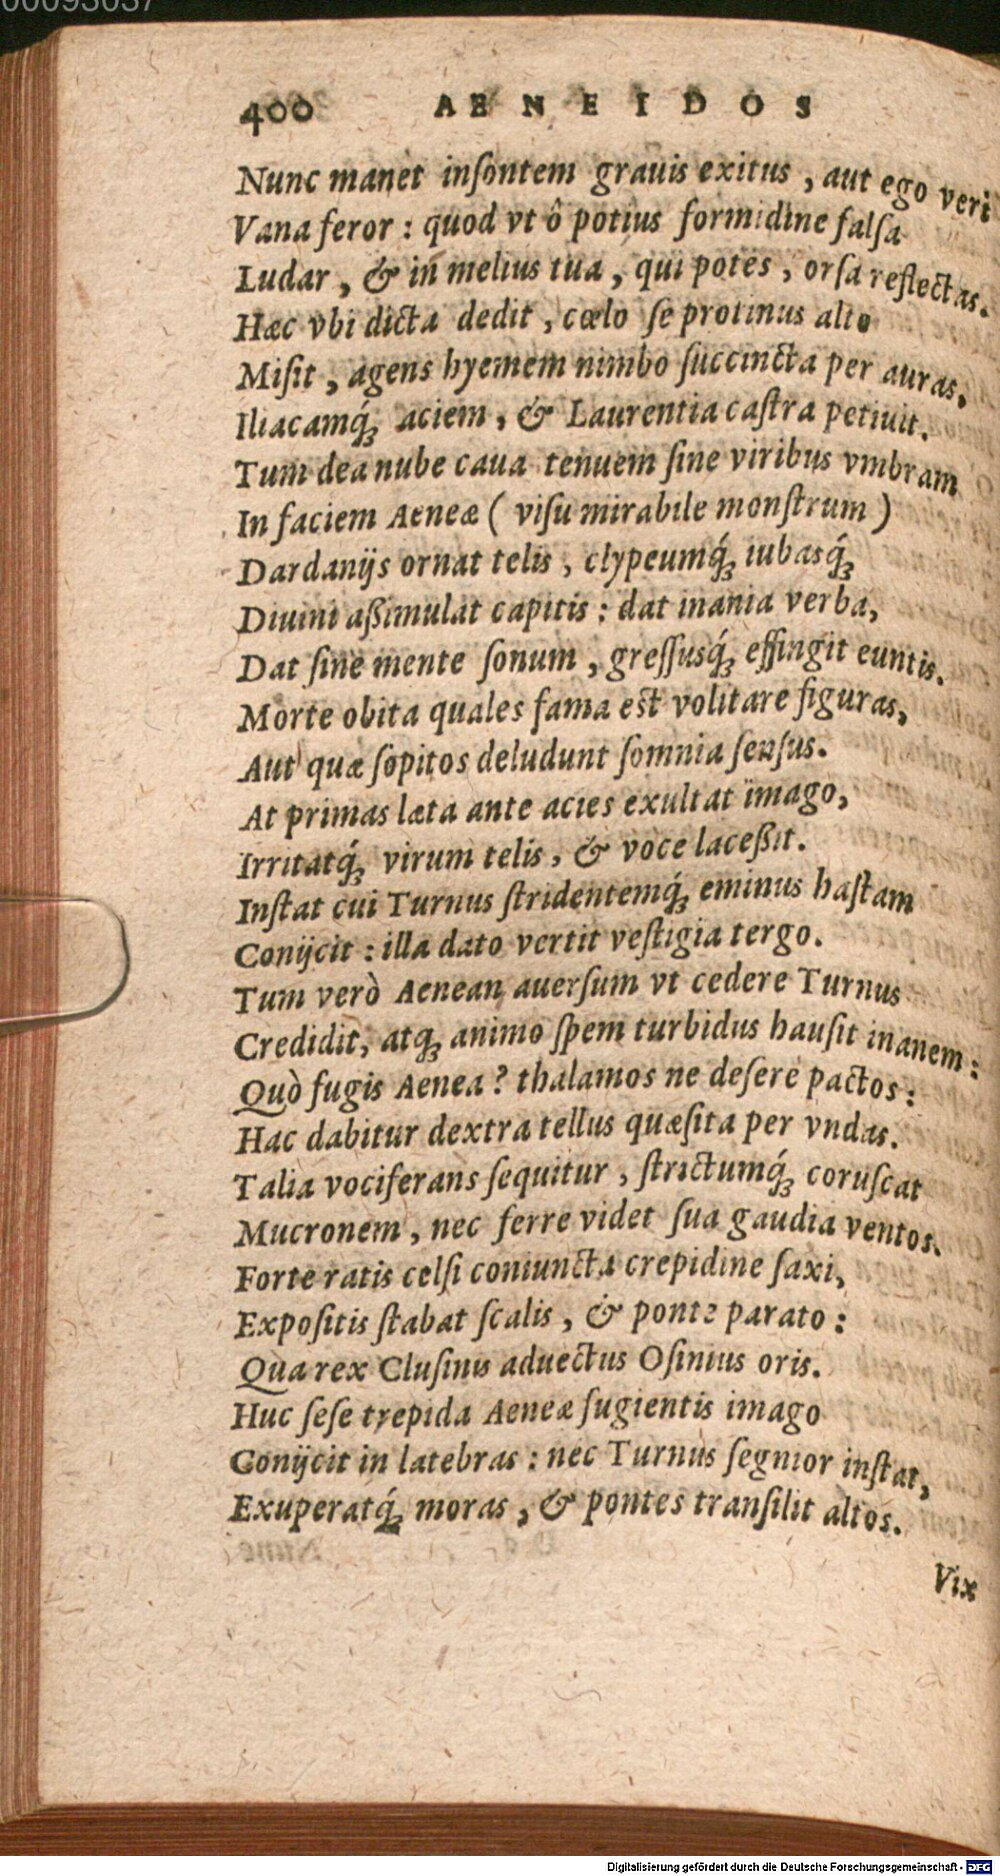 00093037
400 AENEIDOS
Nunc manet inſontem grauis exitus, aut ego veri
Vana feror: quod vt ô potius formidine falſa
Ludar, & in melius tua, qui potes, orſa reflectas.
Hæc vbi dicta dedit, cœlo ſe protinus alto
Miſit, agens hyemem nimbo ſuccincta per auras,
Iliacamq́; aciem, & Laurentia caſtra petiuit.
Tum dea nube caua tenuem ſine viribus vmbram
In faciem Aeneæ (viſu mirabile monſtrum)
Dardanijs ornat telis, clypeumq́; iubasq́;
Diuini aßimulat capitis: dat inania verba,
Dat ſine mente ſonum, greſſusq́; effingit euntis.
Morte obita quales fama est volitare figuras,
Aut quæ ſopitos deludunt ſomnia ſenſus.
At primas læta ante acies exultat imago,
Irritatq́; virum telis, & voce laceßit.
Inſtat cui Turnus ſtridentemq́; eminus haſtam
Conijcit: illa dato vertit veſtigia tergo.
Tum verò Aenean auerſum vt cedere Turnus
Credidit, atq; animo ſpem turbidus hauſit inanem:
Quò fugis Aenea? thalamos ne deſere pactos:
Hac dabitur dextra tellus quæſita per vndas.
Talia vociferans ſequitur, ſtrictumq́; coruſcat
Mucronem, nec ferre videt ſua gaudia ventos.
Forte ratis celſi coniuncta crepidine ſaxi,
Expoſitis ſtabat ſcalis, & ponte parato:
Qua rex Cluſinus aduectus Oſinius oris.
Huc ſeſe trepida Aeneæ fugientis imago
Conijcit in latebras: nec Turnus ſegnior inſtat,
Exuperatq́; moras, & pontes tranſilit altos.
Vix
Digitalisierung gefördert durch die Deutsche Forschungsgemeinschaft - DFG